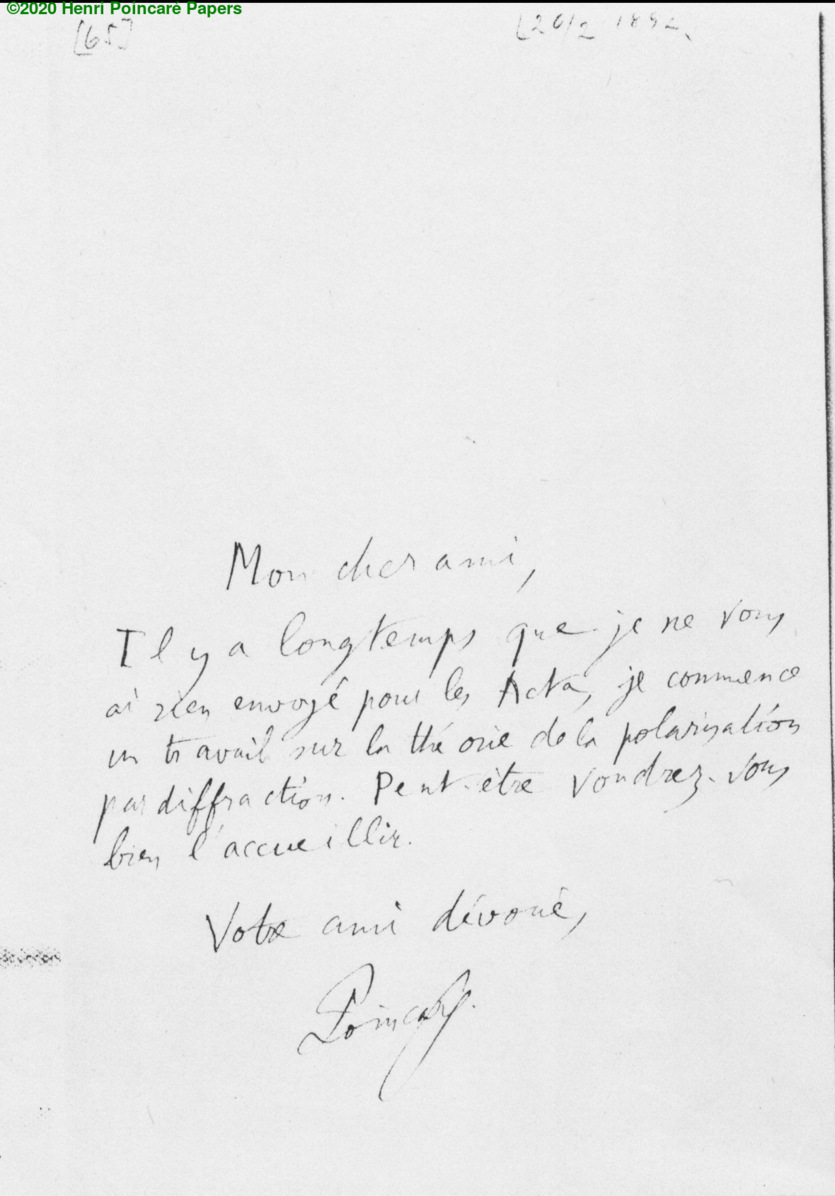 ©2020 Henri Poincaré Papers
[65] [20/2 1892
Mon cher ami,
Il y a longtemps que je ne vous
ai rien envoyé pour les Acta, je commence
un travail sur la théorie de la polarisation
par diffraction. Peut-être voudrez-vous
bien l'accueillir.
Votre ami dévoué,
Poincaré